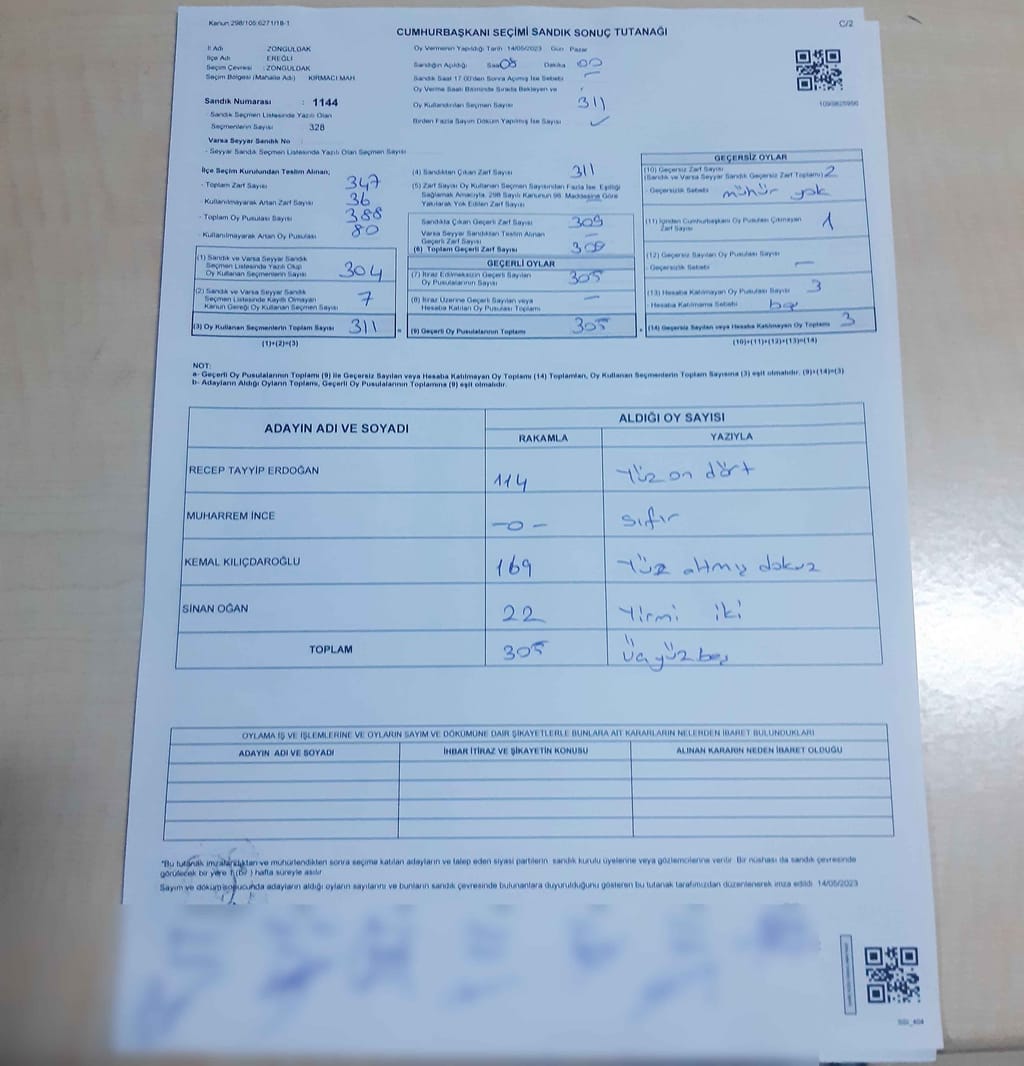 Kanun 298/105 6271/18-1
C/2
CUMHURBAŞKANI SEÇİMİ SANDIK SONUÇ TUTANAĞI
İl Adı ZONGULDAK
İlçe Adı EREĞLİ
Seçim Çevresi : ZONGULDAK
Seçim Bölgesi (Mahalle Adı) KIRMACI MAH.
Sandık Numarası : 1144
Sandık Seçmen Listesinde Yazılı Olan
Seçmenlerin Sayısı 328
Varsa Seyyar Sandık No :
- Seyyar Sandık Seçmen Listesinde Yazılı Olan Seçmen Sayısı
Oy Vermenin Yapıldığı Tarih 14/05/2023 Gün Pazar
Sandığın Açıldığı Saat 08 Dakika 00
Sandık Saat 17.00'den Sonra Açılmış İse Sebebi —
Oy Verme Saati Bitiminde Sırada Bekleyen ve
Oy Kullandırılan Seçmen Sayısı 311
Birden Fazla Sayım Döküm Yapılmış İse Sayısı
İlçe Seçim Kurulundan Teslim Alınan;
- Toplam Zarf Sayısı 347
- Kullanılmayarak Artan Zarf Sayısı 36
- Toplam Oy Pusulası Sayısı 388
- Kullanılmayarak Artan Oy Pusulası 80
(1) Sandık ve Varsa Seyyar Sandık
Seçmen Listesinde Yazılı Olup
Oy Kullanan Seçmenlerin Sayısı 304
(2) Sandık ve Varsa Seyyar Sandık
Seçmen Listesinde Kayıtlı Olmayan
Kanun Gereği Oy Kullanan Seçmen Sayısı 7
(3) Oy Kullanan Seçmenlerin Toplam Sayısı 311
(1)+(2)=(3)
(4) Sandıktan Çıkan Zarf Sayısı 311
(5) Zarf Sayısı Oy Kullanan Seçmen Sayısından Fazla İse, Eşitliği
Sağlamak Amacıyla, 298 Sayılı Kanunun 98. Maddesine Göre
Yakılarak Yok Edilen Zarf Sayısı
Sandıkta Çıkan Geçerli Zarf Sayısı 309
Varsa Seyyar Sandıktan Teslim Alınan
Geçerli Zarf Sayısı —
(6) Toplam Geçerli Zarf Sayısı 309
GEÇERLİ OYLAR
(7) İtiraz Edilmeksizin Geçerli Sayılan
Oy Pusulalarının Sayısı 305
(8) İtiraz Üzerine Geçerli Sayılan veya
Hesaba Katılan Oy Pusulası Toplamı —
(9) Geçerli Oy Pusulalarının Toplamı 305
GEÇERSİZ OYLAR
(10) Geçersiz Zarf Sayısı
(Sandık ve Varsa Seyyar Sandık Geçersiz Zarf Toplamı) 2
- Geçersizlik Sebebi mühür yok
(11) İçinden Cumhurbaşkanı Oy Pusulası Çıkmayan
Zarf Sayısı 1
(12) Geçersiz Sayılan Oy Pusulası Sayısı
- Geçersizlik Sebebi —
(13) Hesaba Katılmayan Oy Pusulası Sayısı 3
Hesaba Katılmama Sebebi boş
(14) Geçersiz Sayılan veya Hesaba Katılmayan Oy Toplamı 3
(10)+(11)+(12)+(13)=(14)
NOT:
a- Geçerli Oy Pusulalarının Toplamı (9) ile Geçersiz Sayılan veya Hesaba Katılmayan Oy Toplamı (14) Toplamları, Oy Kullanan Seçmenlerin Toplam Sayısına (3) eşit olmalıdır. (9)+(14)=(3)
b- Adayların Aldığı Oyların Toplamı, Geçerli Oy Pusulalarının Toplamına (9) eşit olmalıdır.
ADAYIN ADI VE SOYADI ALDIĞI OY SAYISI
RAKAMLA YAZIYLA
RECEP TAYYİP ERDOĞAN 114 Yüz on dört
MUHARREM İNCE —0— sıfır
KEMAL KILIÇDAROĞLU 169 Yüz altmış dokuz
SİNAN OĞAN 22 Yirmi iki
TOPLAM 305 Üç yüz beş
OYLAMA İŞ VE İŞLEMLERİNE VE OYLARIN SAYIM VE DÖKÜMÜNE DAİR ŞİKAYETLERLE BUNLARA AİT KARARLARIN NELERDEN İBARET BULUNDUKLARI
ADAYIN ADI VE SOYADI İHBAR İTİRAZ VE ŞİKAYETİN KONUSU ALINAN KARARIN NEDEN İBARET OLDUĞU
"Bu tutanak imzalandıktan ve mühürlendikten sonra seçime katılan adayların ve talep eden siyasi partilerin sandık kurulu üyelerine veya gözlemcilerine verilir. Bir nüshası da sandık çevresinde
görülecek bir yere 1 (bir) hafta süreyle asılır.
Sayım ve döküm sonucunda adayların aldığı oyların sayılarını ve bunların sandık çevresinde bulunanlara duyurulduğunu gösteren bu tutanak tarafımızdan düzenlenerek imza edildi. 14/05/2023